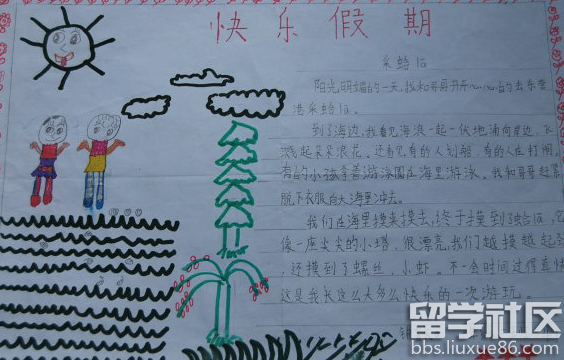 快乐假期
采蛤蜊
阳光明媚的一天,我和哥哥开开心心的去东营
港采蛤蜊。
到了海边,我看见海浪一起一伏地涌向岸边,飞
溅起朵朵浪花。还看见有的人划船,有的人在打闹,
有的小孩拿着游泳圈在海里游泳。我和哥哥赶紧
脱下衣服向大海里冲去。
我们在海里摸来摸去,终于摸到了蛤蜊,它
像一座尖尖的小塔,很漂亮,我们越摸越起
,还摸到了螺丝、小虾。不一会时间过得真快
这是我长这么大多么快乐的一次游玩。
留学社区
bbs.liuxue86.com